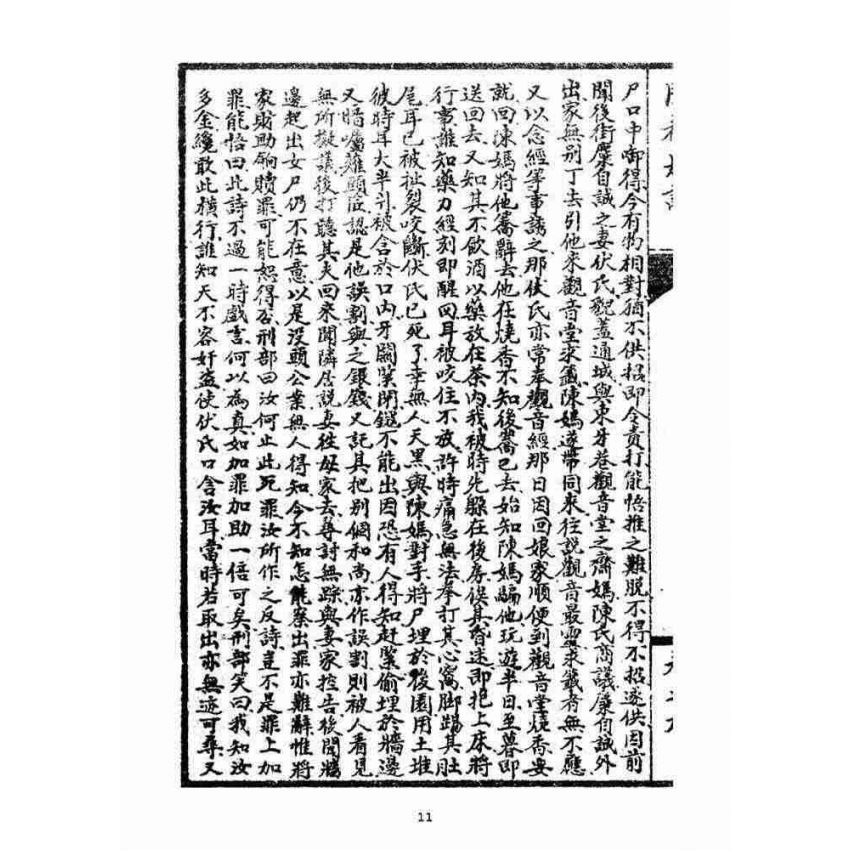 尸口中啣得今有物相對猶不供招即令責打能悟推之難脫不得不招遂供因前
聞後街糜自誠之妻伏氏觀蓋通城與東牙巷觀音堂之齋媽陳氏商議廉自誠外
出家無別丁去引他來觀音堂求籤陳媽遂帶同來往說觀音最靈求籤者無不應
又以念經等事誘之那伏氏亦常奉觀音經那日因回娘家順便到觀音堂燒香安
就回陳媽將他喬辭去他在燒香不知後喬已去始知陳媽騙他玩遊半日至暮即
送回去又知其不飲酒以藥放在茶內我彼時先躲在後房俟其昏迷即抱上床將
行事誰知藥力經刻即醒回耳被咬住不放許時痛急無法拳打其心窩脚踢其肚
尾耳已被扯裂咬斷伏氏已死了幸無人天黑與陳媽對手將尸埋於後園用土堆
彼時耳大半引被含於口內牙關緊閉鎚不能出因恐有人得知赶緊偷埋於牆邊
又暗囑薙頭匠認是他誤割與之銀錢又託其把別個和尚亦作誤割則被人看見
無所擬議後打聽其夫回來聞隣居說妻往母家去尋討無踪與妻家控告後聞牆
邊起出女尸仍不在意以是没頭公案無人得知今不知怎能察出罪亦難辭惟將
家財助餉贖罪可能恕得否刑部曰汝何止此死罪汝所作之反詩豈不是罪上加
罪能悟曰此詩不過一時戲言何以為真如加罪加助一倍可矣刑部笑曰我知汝
多金纔敢此橫行誰知天不容奸盗使伏氏口含汝耳當時若取出亦無迹可尋又
11